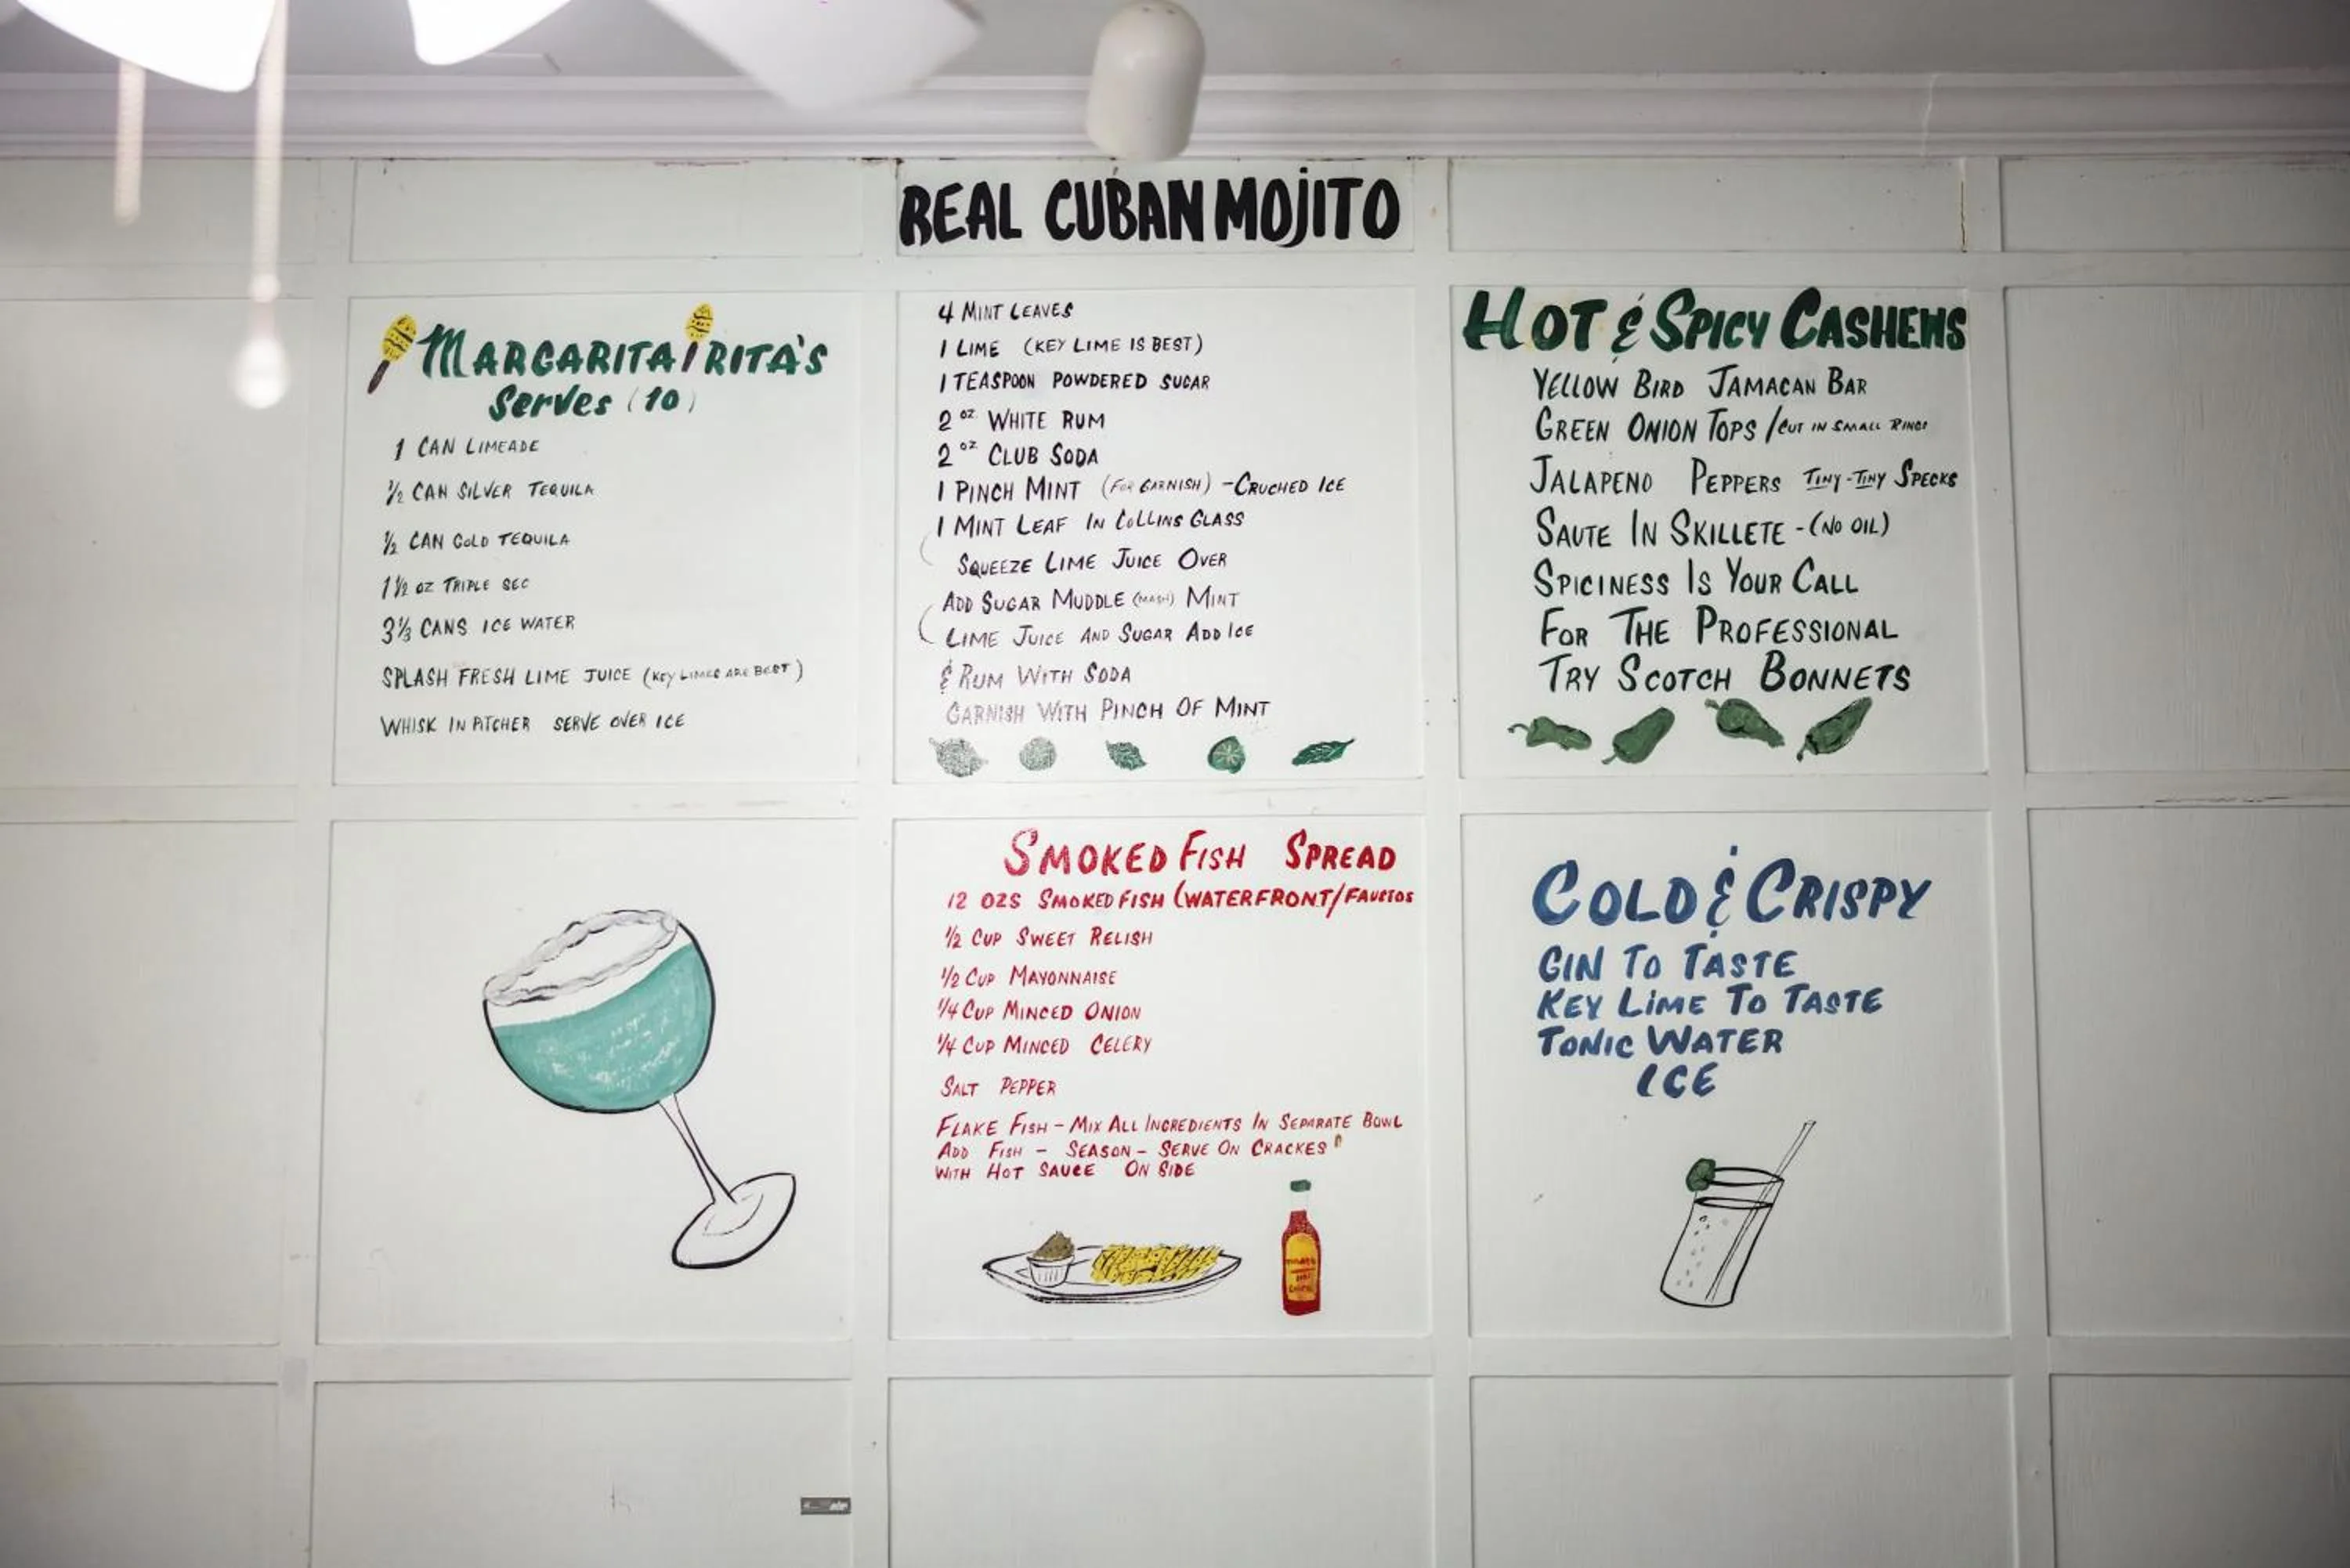 REAL CUBAN MOJITO
MARGARITA RITA'S
Serves (10)
1 CAN LIMEADE
1/2 CAN SILVER TEQUILA
1/2 CAN GOLD TEQUILA
1 1/2 OZ TRIPLE SEC
3 1/3 CANS ICE WATER
SPLASH FRESH LIME JUICE (KEY LIMES ARE BEST)
WHISK IN PITCHER SERVE OVER ICE
4 MINT LEAVES
1 LIME (KEY LIME IS BEST)
1 TEASPOON POWDERED SUGAR
2 OZ. WHITE RUM
2 OZ CLUB SODA
1 PINCH MINT (FOR GARNISH) - CRUCHED ICE
1 MINT LEAF IN COLLINS GLASS
SQUEEZE LIME JUICE OVER
ADD SUGAR MUDDLE (MASH) MINT
LIME JUICE AND SUGAR ADD ICE
& RUM WITH SODA
GARNISH WITH PINCH OF MINT
HOT & SPICY CASHEWS
YELLOW BIRD JAMACAN BAR
GREEN ONION TOPS / CUT IN SMALL RINGS
JALAPENO PEPPERS TINY-TINY SPECKS
SAUTE IN SKILLETE - (NO OIL)
SPICINESS IS YOUR CALL
FOR THE PROFESSIONAL
TRY SCOTCH BONNETS
SMOKED FISH SPREAD
12 OZS SMOKED FISH (WATERFRONT/FAUSTOS
1/2 CUP SWEET RELISH
1/2 CUP MAYONNAISE
1/4 CUP MINCED ONION
1/4 CUP MINCED CELERY
SALT PEPPER
FLAKE FISH - MIX ALL INGREDIENTS IN SEPARATE BOWL
ADD FISH - SEASON - SERVE ON CRACKES
WITH HOT SAUCE ON SIDE
COLD & CRISPY
GIN TO TASTE
KEY LIME TO TASTE
TONIC WATER
ICE